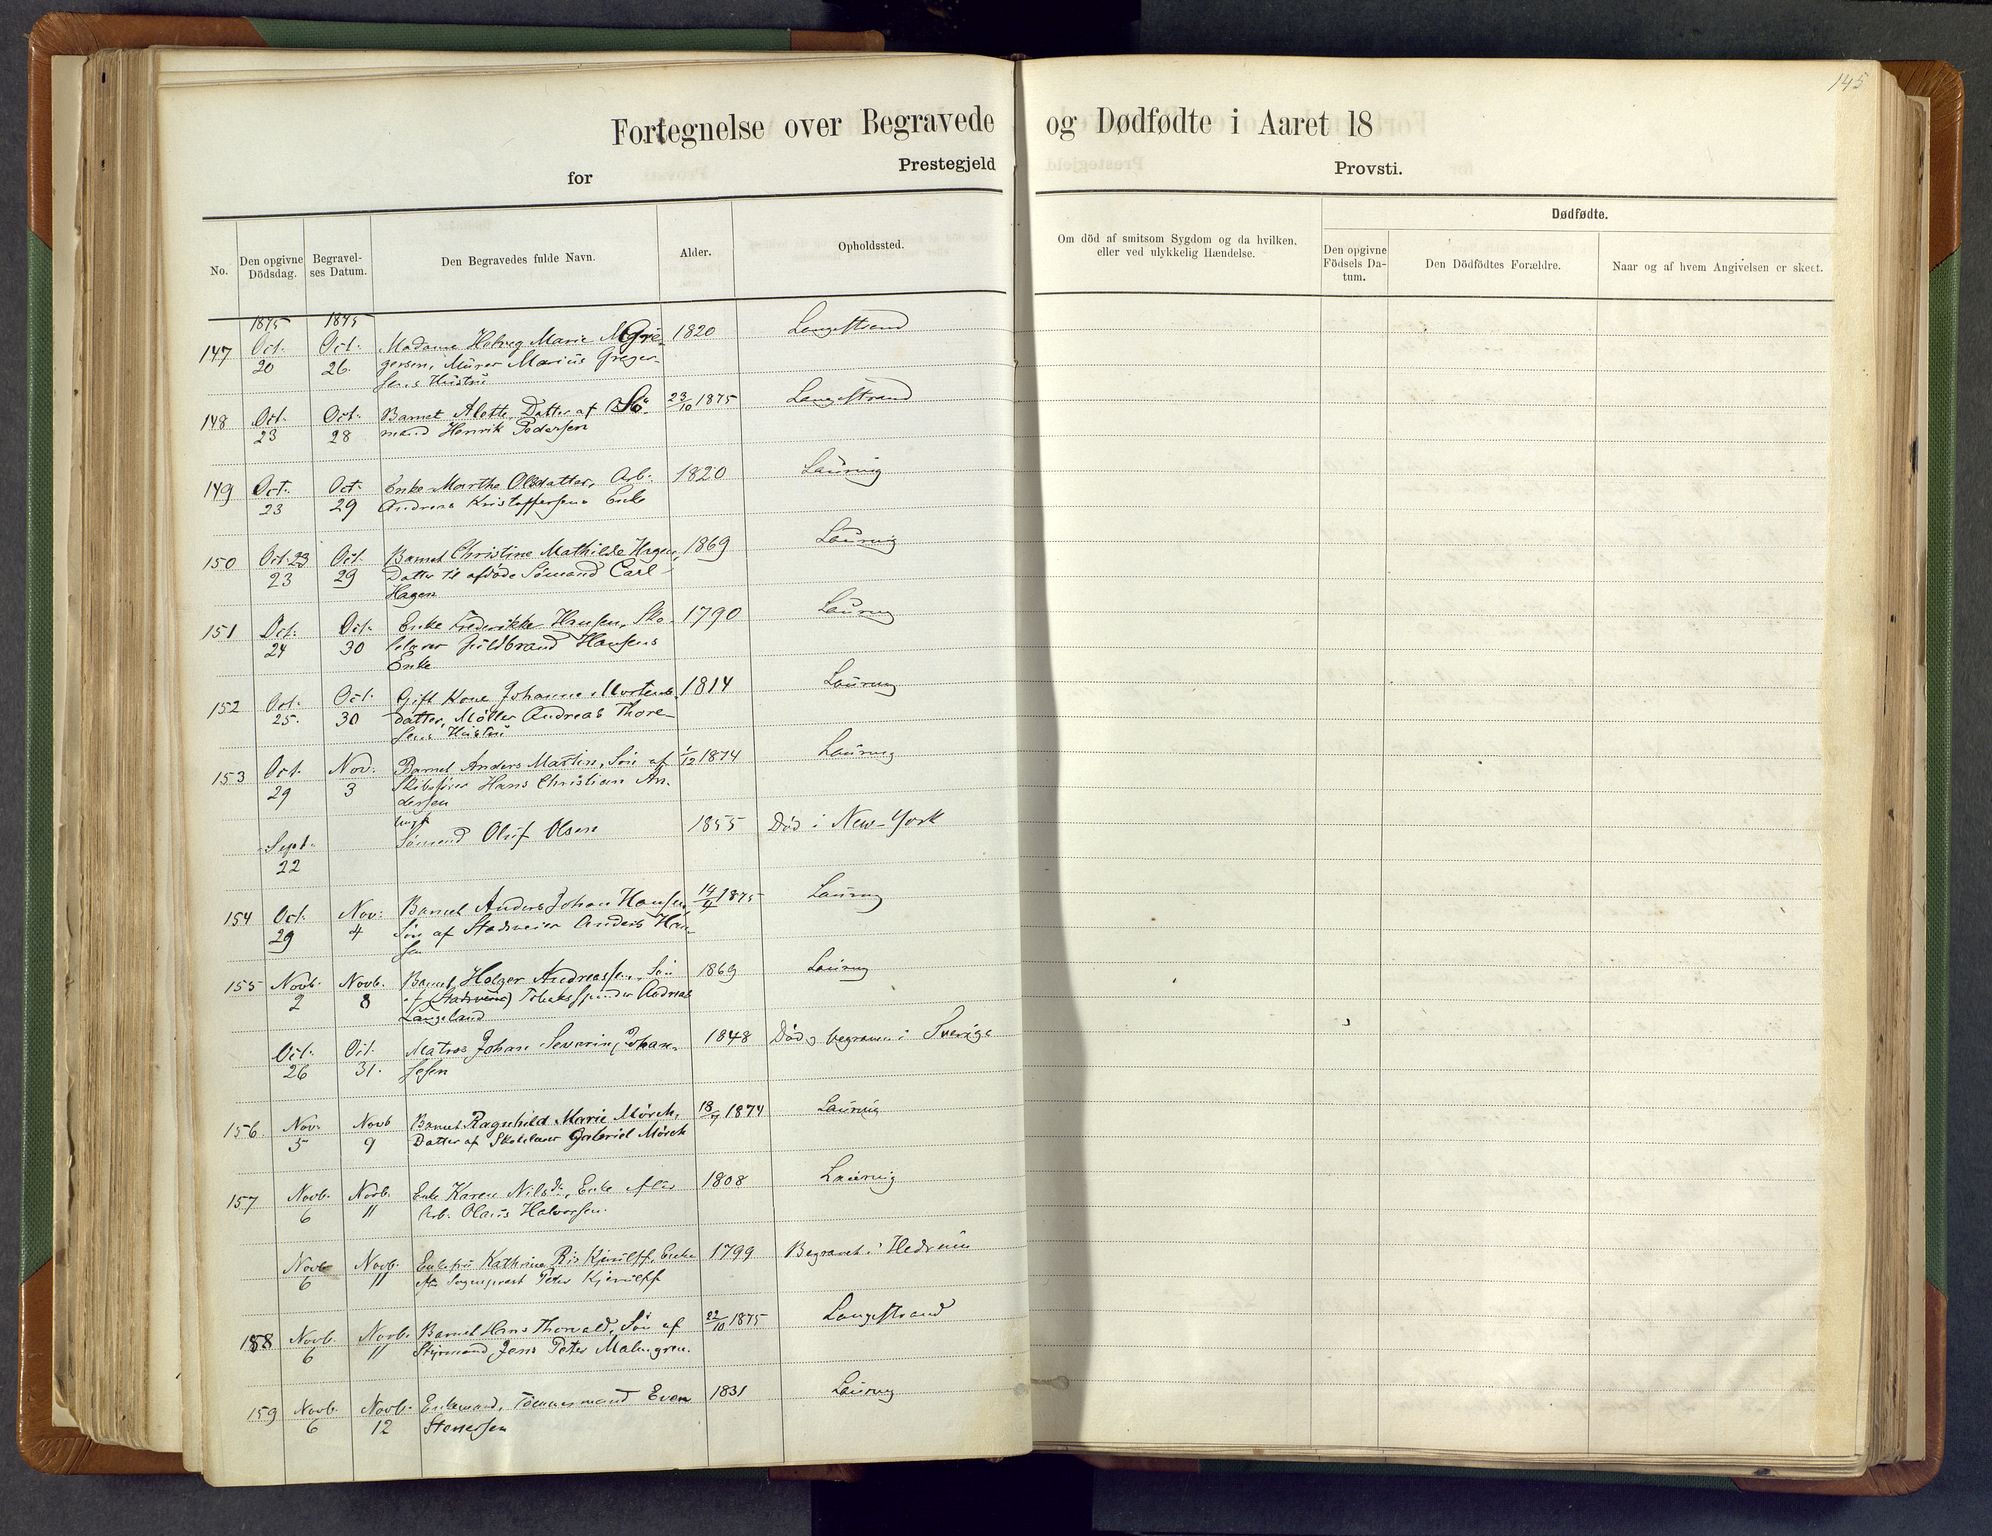 145
Fortegnelse over Begravede og Dødfødte i Aaret 18
for Prestegjeld Provsti.
No. Den opgivne Dödsdag. Begravelses Datum. Den Begravedes fulde Navn. Alder. Opholdssted. Om död af smitsom Sygdom og da hvilken, eller ved ulykkelig Hændelse. Dødfødte. Den opgivne Födsels Datum. Den Dödfödtes Forældre. Naar og af hvem Angivelsen er skeet.
1875 1875
147 Oct. 20 Oct. 26. Madame Helveg Marie Gre- 1820 Langestrand
gersen, Murer Marius Greger-
sens Hustru
148 Oct. 23 Oct. 28 Barnet Alette, Datter af Sö- 23/10 1875 Langestrand
mand Henrik Pedersen
149 Oct. 23 Oct. 29 Enke Marthe Olsdatter, Arb. 1820 Laurvig
Andreas Kristoffersens Enke
150 Oct. 23 23 Oct. 29 Barnet Christine Mathilde Hagen, 1869 Laurvig
Datter til afdöde Sømand Carl
Hagen
151 Oct. 24 Oct. 30 Enke Frederikke Hansen, Sko- 1790 Laurvig
lelærer Guldbrand Hansens
Enke
152 Oct. 25. Oct. 30 Gift Kone Johanne Mortens- 1814 Laurvig
datter, Møller Andreas Thore-
sens Hustru
153 Oct. 29 Nov. 3 Barnet Anders Martin, Sön af 1/12 1874 Laurvig
Skibsfører Hans Christian An-
dersen
Sept. 22 ungk Sømand Oluf Olsen 1855 Död i New-York
154 Oct. 29 Nov. 4 Barnet Anders Johan Hansen, 14/4 1875 Laurvig
Sön af Stadsveier Anders Han-
sen
155 Novb. 2 Novb. 8 Barnet Holger Andreassen, Sön 1869 Laurvig
af (Stadsveier) Tobaksspinder Andreas
Langeland
Oct. 26 Oct. 31. Matros Johan Severin Johan- 1848 Död og begraven i Sverige
sesen
156. Nov. 5 Novb 9 Barnet Ragnhild Marie Mörch, 18/7 1874 Laurvig
Datter af Skolelærer Gabriel Mörch
157 Novb. 6 Novb. 11 Enke Karen Nilsd., Enke efter 1808 Laurvig
Arb. Olaus Halvorsen.
Novb. 6 Novb. 11 Enkefru Kathrine Riis Kjerulff, Enke 1799 Begravet i Hedrum
efter Sogneprest Peter Kjerulff
158 Novb. 6 Novb. 11 Barnet Hans Thorvald, Sön af 22/10 1875 Langestrand
Styrmand Jens Peter Malmgren.
159 Novb. 6 Novb. 12 Enkemand, Tömmermand Even 1831 Laurvig
Stenersen